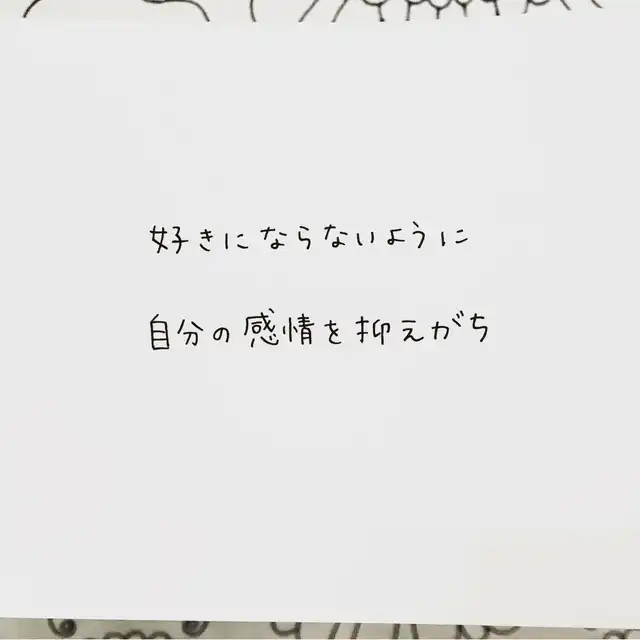 好きにならないように
自分の感情を抑えがち